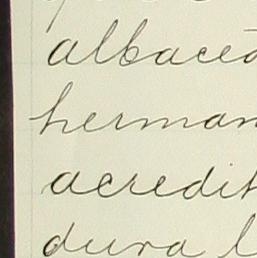 albacea
herman
acredit
dura l